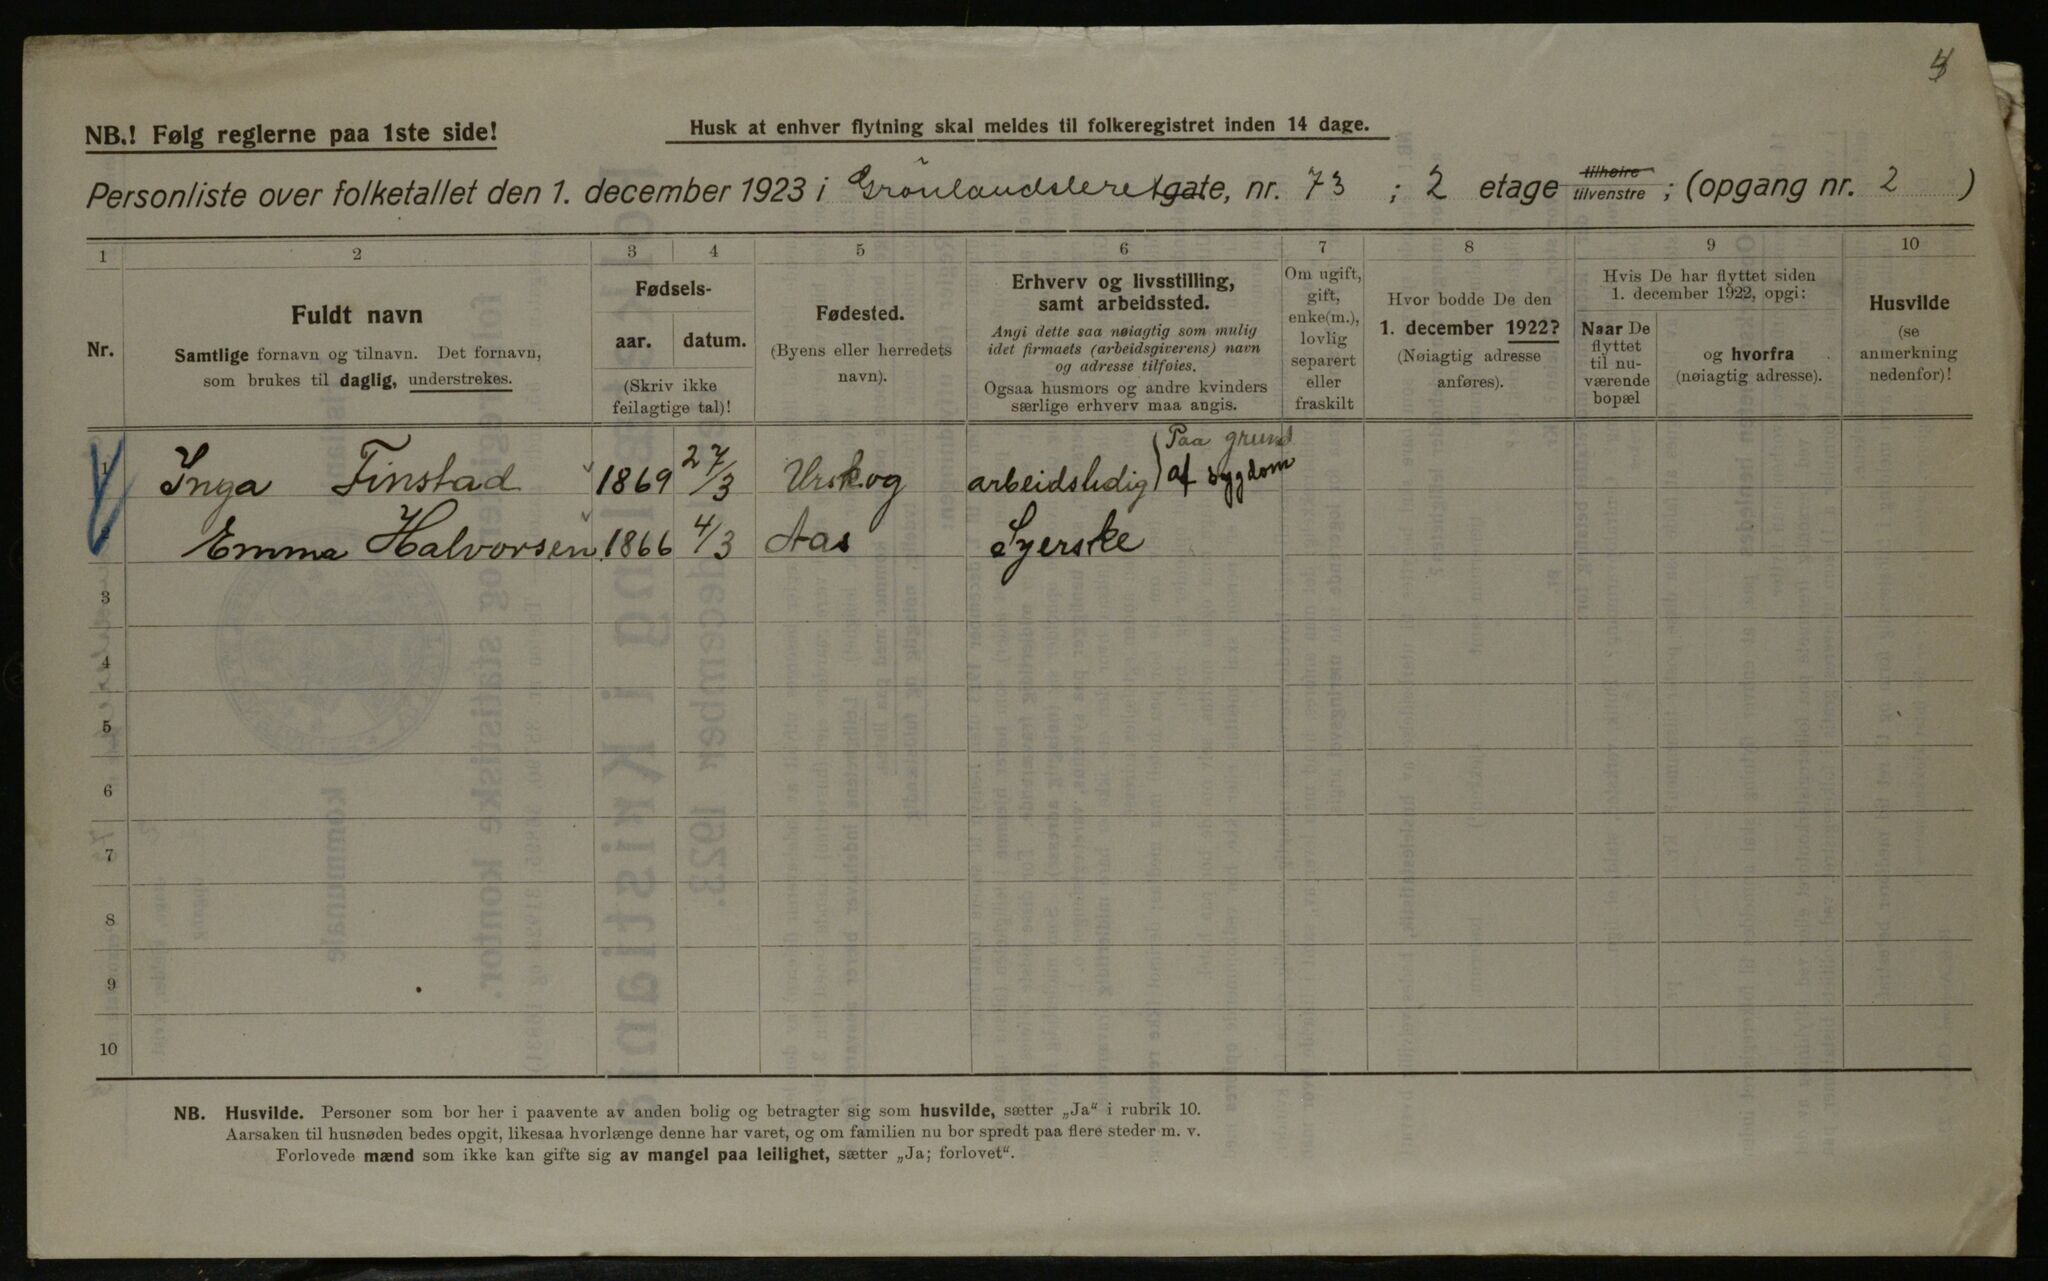 4
NB.! Følg reglerne paa 1ste side!
Husk at enhver flytning skal meldes til folkeregistret inden 14 dage.
Personliste over folketallet den 1. december 1923 i Grönlandsleret gate, nr. 73 ; 2 etage tilhøire tilvenstre ; (opgang nr. 2 )
1 2 3 4 5 6 7 8 9 10
Nr.
Fuldt navn
Samtlige fornavn og tilnavn. Det fornavn,
som brukes til daglig, understrekes.
Fødsels-
aar. datum.
(Skriv ikke
feilagtige tal)!
Fødested.
(Byens eller herredets
navn).
Erhverv og livsstilling,
samt arbeidssted.
Angi dette saa nøiagtig som mulig
idet firmaets (arbeidsgiverens) navn
og adresse tilføies.
Ogsaa husmors og andre kvinders
særlige erhverv maa angis.
Om ugift,
gift,
enke(m.),
lovlig
separert
eller
fraskilt
Hvor bodde De den
1. december 1922?
(Nøiagtig adresse
anføres).
Hvis De har flyttet siden
1. december 1922, opgi:
Naar De
flyttet
til nu-
værende
bopæl
og hvorfra
(nøiagtig adresse).
Husvilde
(se
anmerkning
nedenfor)!
1 Inga Finstad 1869 27/3 Urskog arbeidsledig } Paa grund
af sygdom
Emma Halvorsen 1866 4/3 Aas Syerske
3
4
5
6
7
8
9
10
NB. Husvilde. Personer som bor her i paavente av anden bolig og betragter sig som husvilde, sætter „Ja“ i rubrik 10.
Aarsaken til husnøden bedes opgit, likesaa hvorlænge denne har varet, og om familien nu bor spredt paa flere steder m. v.
Forlovede mænd som ikke kan gifte sig av mangel paa leilighet, sætter „Ja; forlovet“.